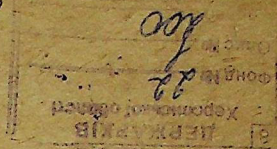 ДЕРЖАРХІВ
Херсонської області
Фонд № 22
Опис №